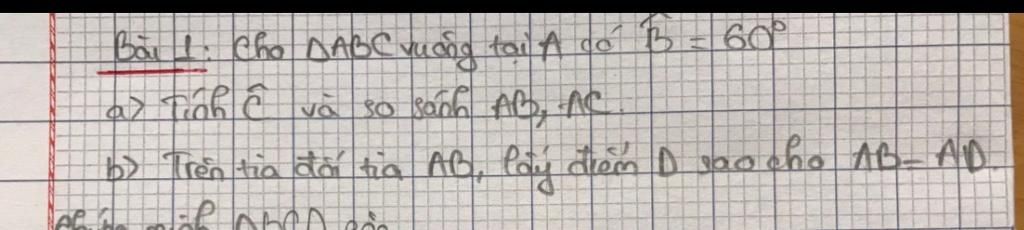 Bài 1: Cho ΔABC vuông tại A có B̂ = 60°
a) Tính Ĉ và so sánh AB, AC.
b) Trên tia đối tia AB, lấy điểm D sao cho AB = AD.